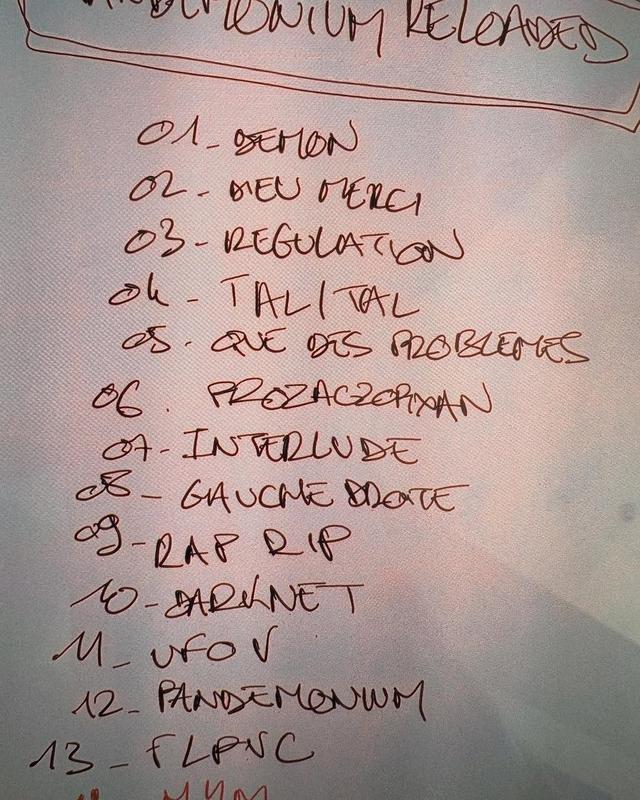 PANDEMONIUM RELOADED
01 - DEMON
02 - DIEU MERCI
03 - REGULATION
04 - TALITAL
05 - QUE DES PROBLEMES
06 . PROZACZOPIXAN
07 - INTERLUDE
08 - GAUCHE DROITE
09 - RAP RIP
10 - DARKNET
11 - UFO V
12 - PANDEMONIUM
13 - FLPNC